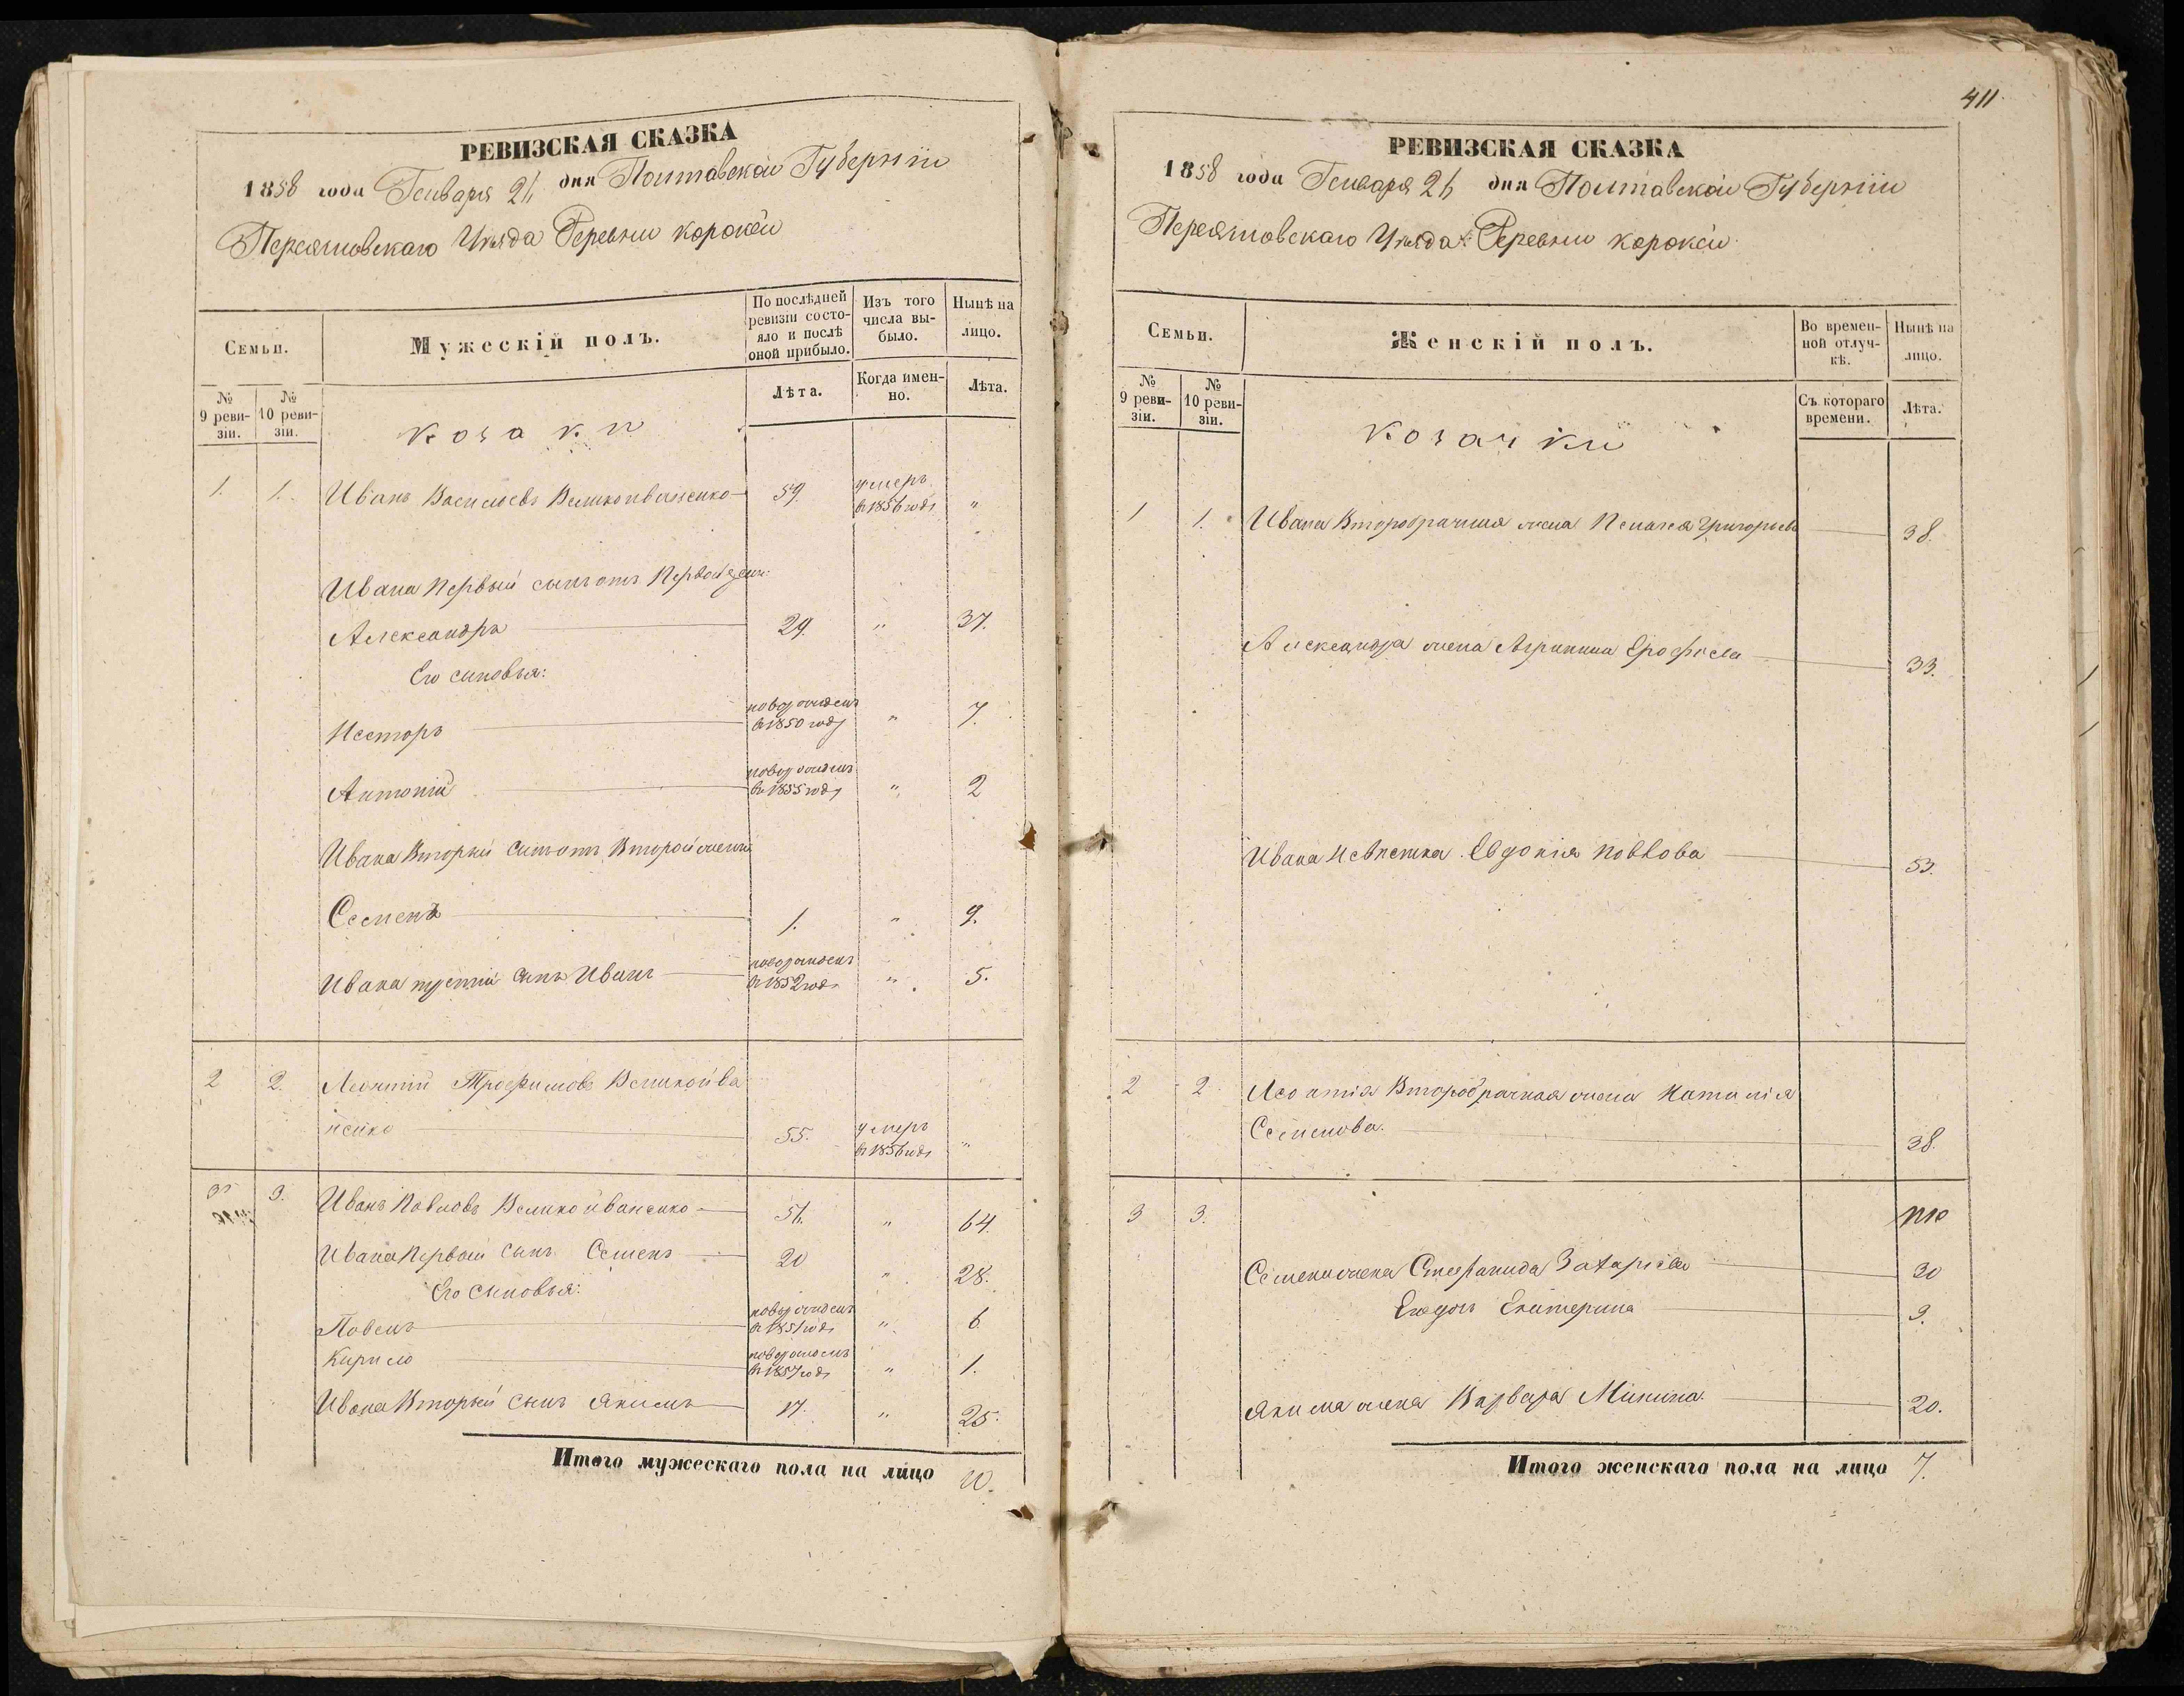 РЕВИЗСКАЯ СКАЗКА
1858 года Генваря 26 дня Полтавской Губернiи
Переяславскаго Уѣзда Деревни
Семьи.
Мужескiй полъ.
По послѣдней ревизiи состояло и послѣ оной прибыло.
Изъ того числа выбыло.
Нынѣ на лицо.
№ 9 ревизiи.
№ 10 ревизiи.
Лѣта.
Когда именно.
Лѣта.
козаки
1. 1. Иванъ Васильевъ Великоиваненко 59. умеръ в 1856 годѣ "
Ивана Первый сынъ отъ Первой жены
Александръ 29. " 37.
Его сыновья:
Несторъ новорожденъ в 1850 году " 7.
Антонiй новорожденъ в 1855 году " 2
Ивана Вторый сынъ отъ Второй жены
Семенъ 1. " 9.
Ивана третiй сынъ Иванъ новорожденъ в 1852 годѣ " 5.
2 2. Леонтiй Трофимовъ Великоива
ненко 55. умеръ в 1856 годѣ "
3 3. Иванъ Павловъ Великоиваненко 56. " 64.
Ивана Первый сынъ Семенъ 20 " 28.
Его сыновья:
Павелъ новорожденъ в 1851 годѣ " 6
Кирило новорожденъ в 1857 годѣ " 1.
Ивана Вторый сынъ Якимъ 17. " 25.
Итого мужескаго пола на лицо 10.
411.
РЕВИЗСКАЯ СКАЗКА
1858 года Генваря 26 дня Полтавской Губернiи
Переяславскаго Уѣзда Деревни
Семьи.
Женскiй полъ.
Во временной отлучкѣ.
Нынѣ на лицо.
№ 9 ревизiи.
№ 10 ревизiи.
Съ котораго времени.
Лѣта.
козачки
1 1. Ивана Второбрачная жена Пелагея Григорьева 38.
Александра жена Агрипина Ерофѣева 33.
Ивана невѣстка Евдокiя Павлова 53.
2 2 Леонтiя Второбрачная жена Наталiя
Семенова. 38.
3 3.
Семена жена Стефанида Захарiева 30
Ихъ дочь Екатерина 9.
Якима жена Варвара Минина. 20.
Итого женскаго пола на лицо 7.